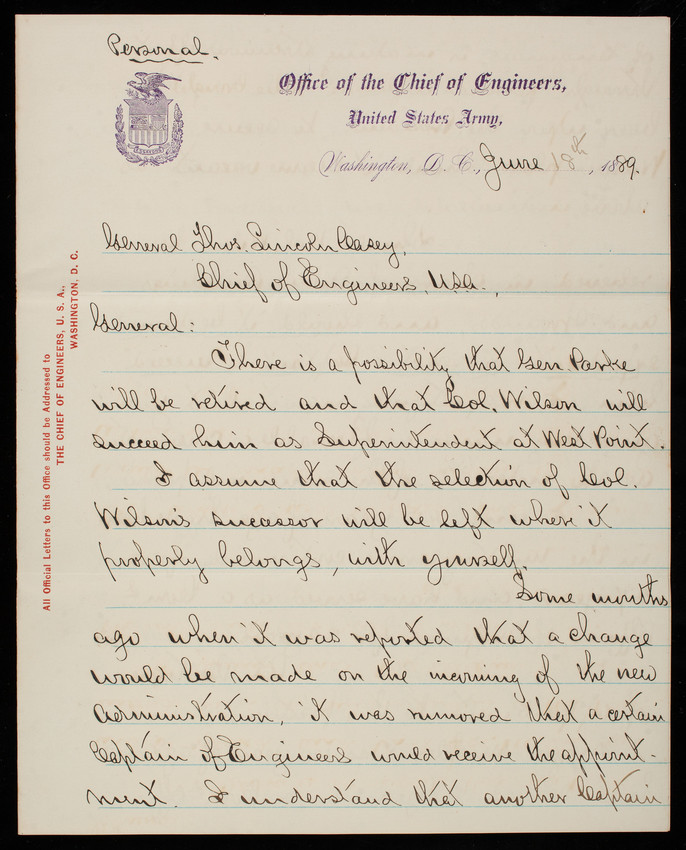 Personal.
Office of the Chief of Engineers,
United States Army,
Washington, D. C., June 18th, 1889.
General Thos. Lincoln Casey,
Chief of Engineers, U.S.A.,
General:
There is a possibility that Gen. Parke
will be retired and that Col. Wilson will
succeed him as Superintendent at West Point.
I assume that the selection of Col.
Wilson's sucessor will be left where it
properly belongs, with yourself.
Some months
ago when it was reported that a change
would be made on the incoming of the new
Administration, it was rumored that a certain
Captain of Engineers would receive the appoint-
ment. I understand that another Captain
All Official Letters to this Office should be Addressed to
THE CHIEF OF ENGINEERS, U. S. A.,
WASHINGTON, D. C.